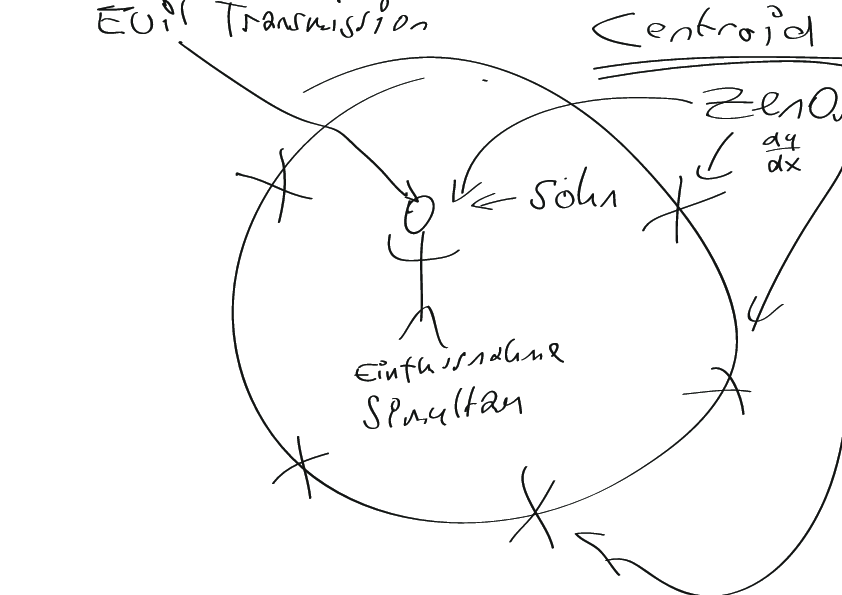 Evil Transmission
Centroid
Zeno
dy
dx
Sohn
Einflussnahme
Simultan